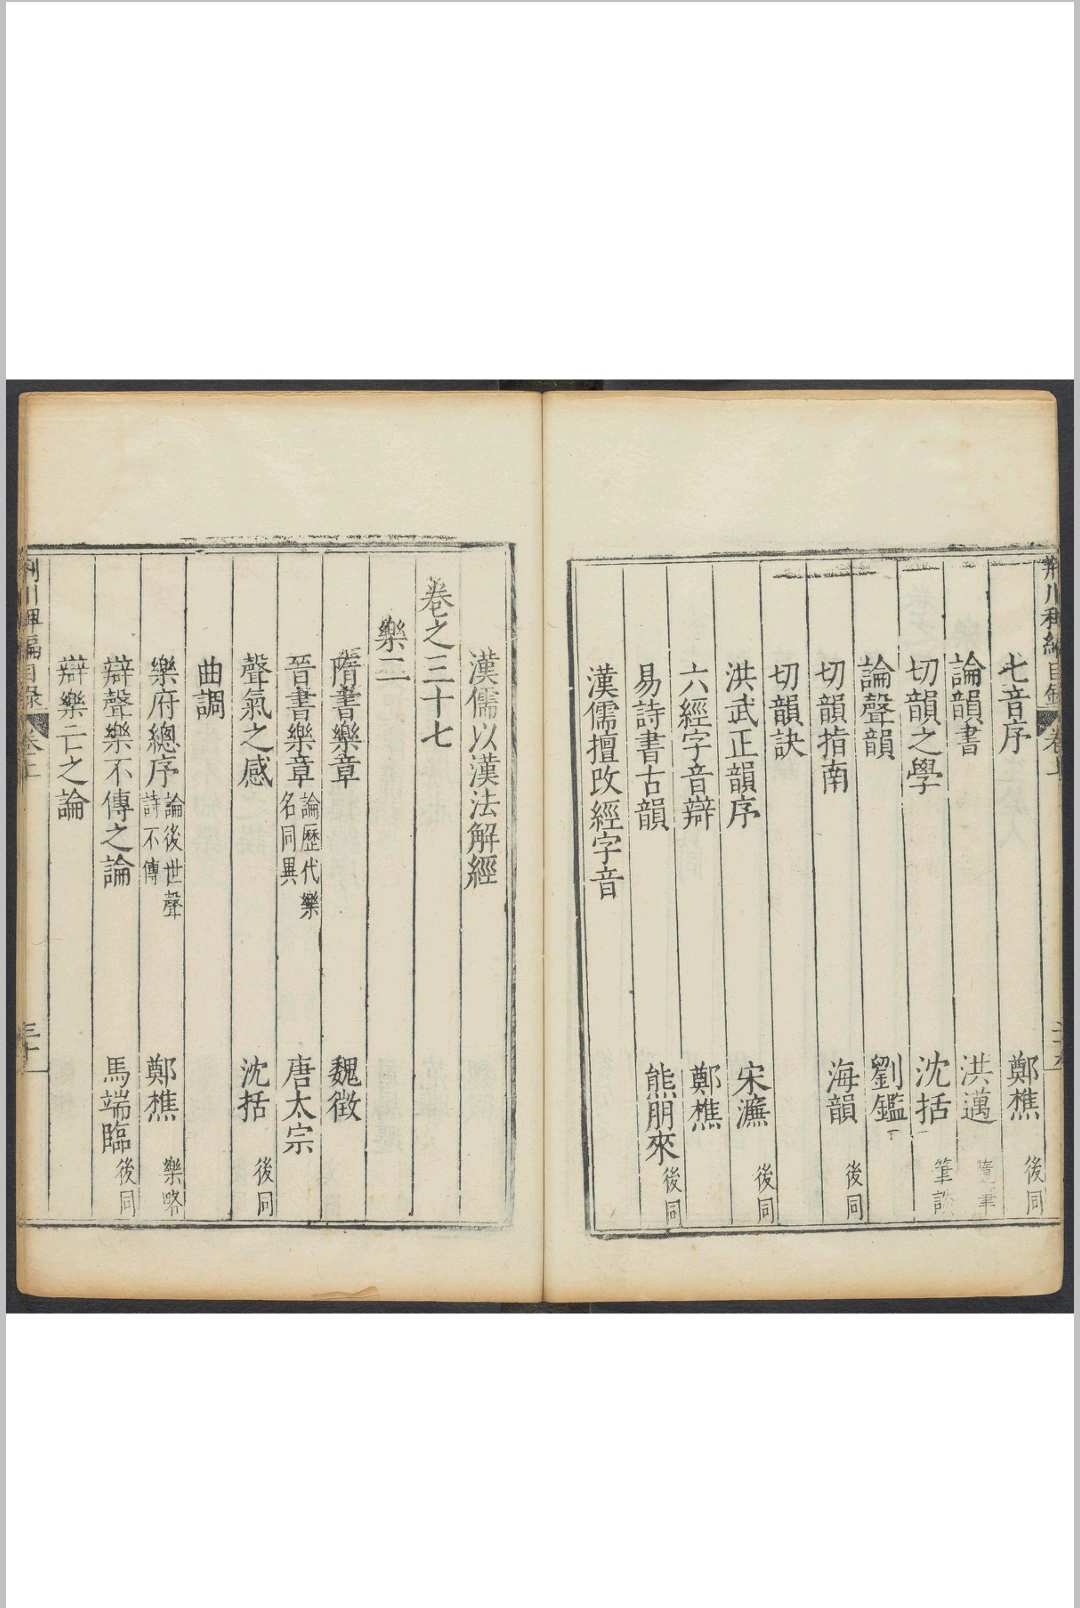 七音序 鄭樵 後同
論韻書 洪邁 隨筆
切韻之學 沈括 筆談
論聲韻 劉鑑
切韻指南 海韻 後同
切韻訣
洪武正韻序 宋濂 後同
六經字音辯 鄭樵
易詩書古韻 熊朋來 後同
漢儒擅改經字音
漢儒以漢法解經
卷之三十七
樂二
隋書樂章 魏徵
晉書樂章 論歷代樂名同異 唐太宗
聲氣之感 沈括 後同
曲調
樂府總序 論後世聲詩不傳 鄭樵 樂略
辯聲樂不傳之論 馬端臨 後同
辯樂亡之論
荊川稗編目錄 卷上